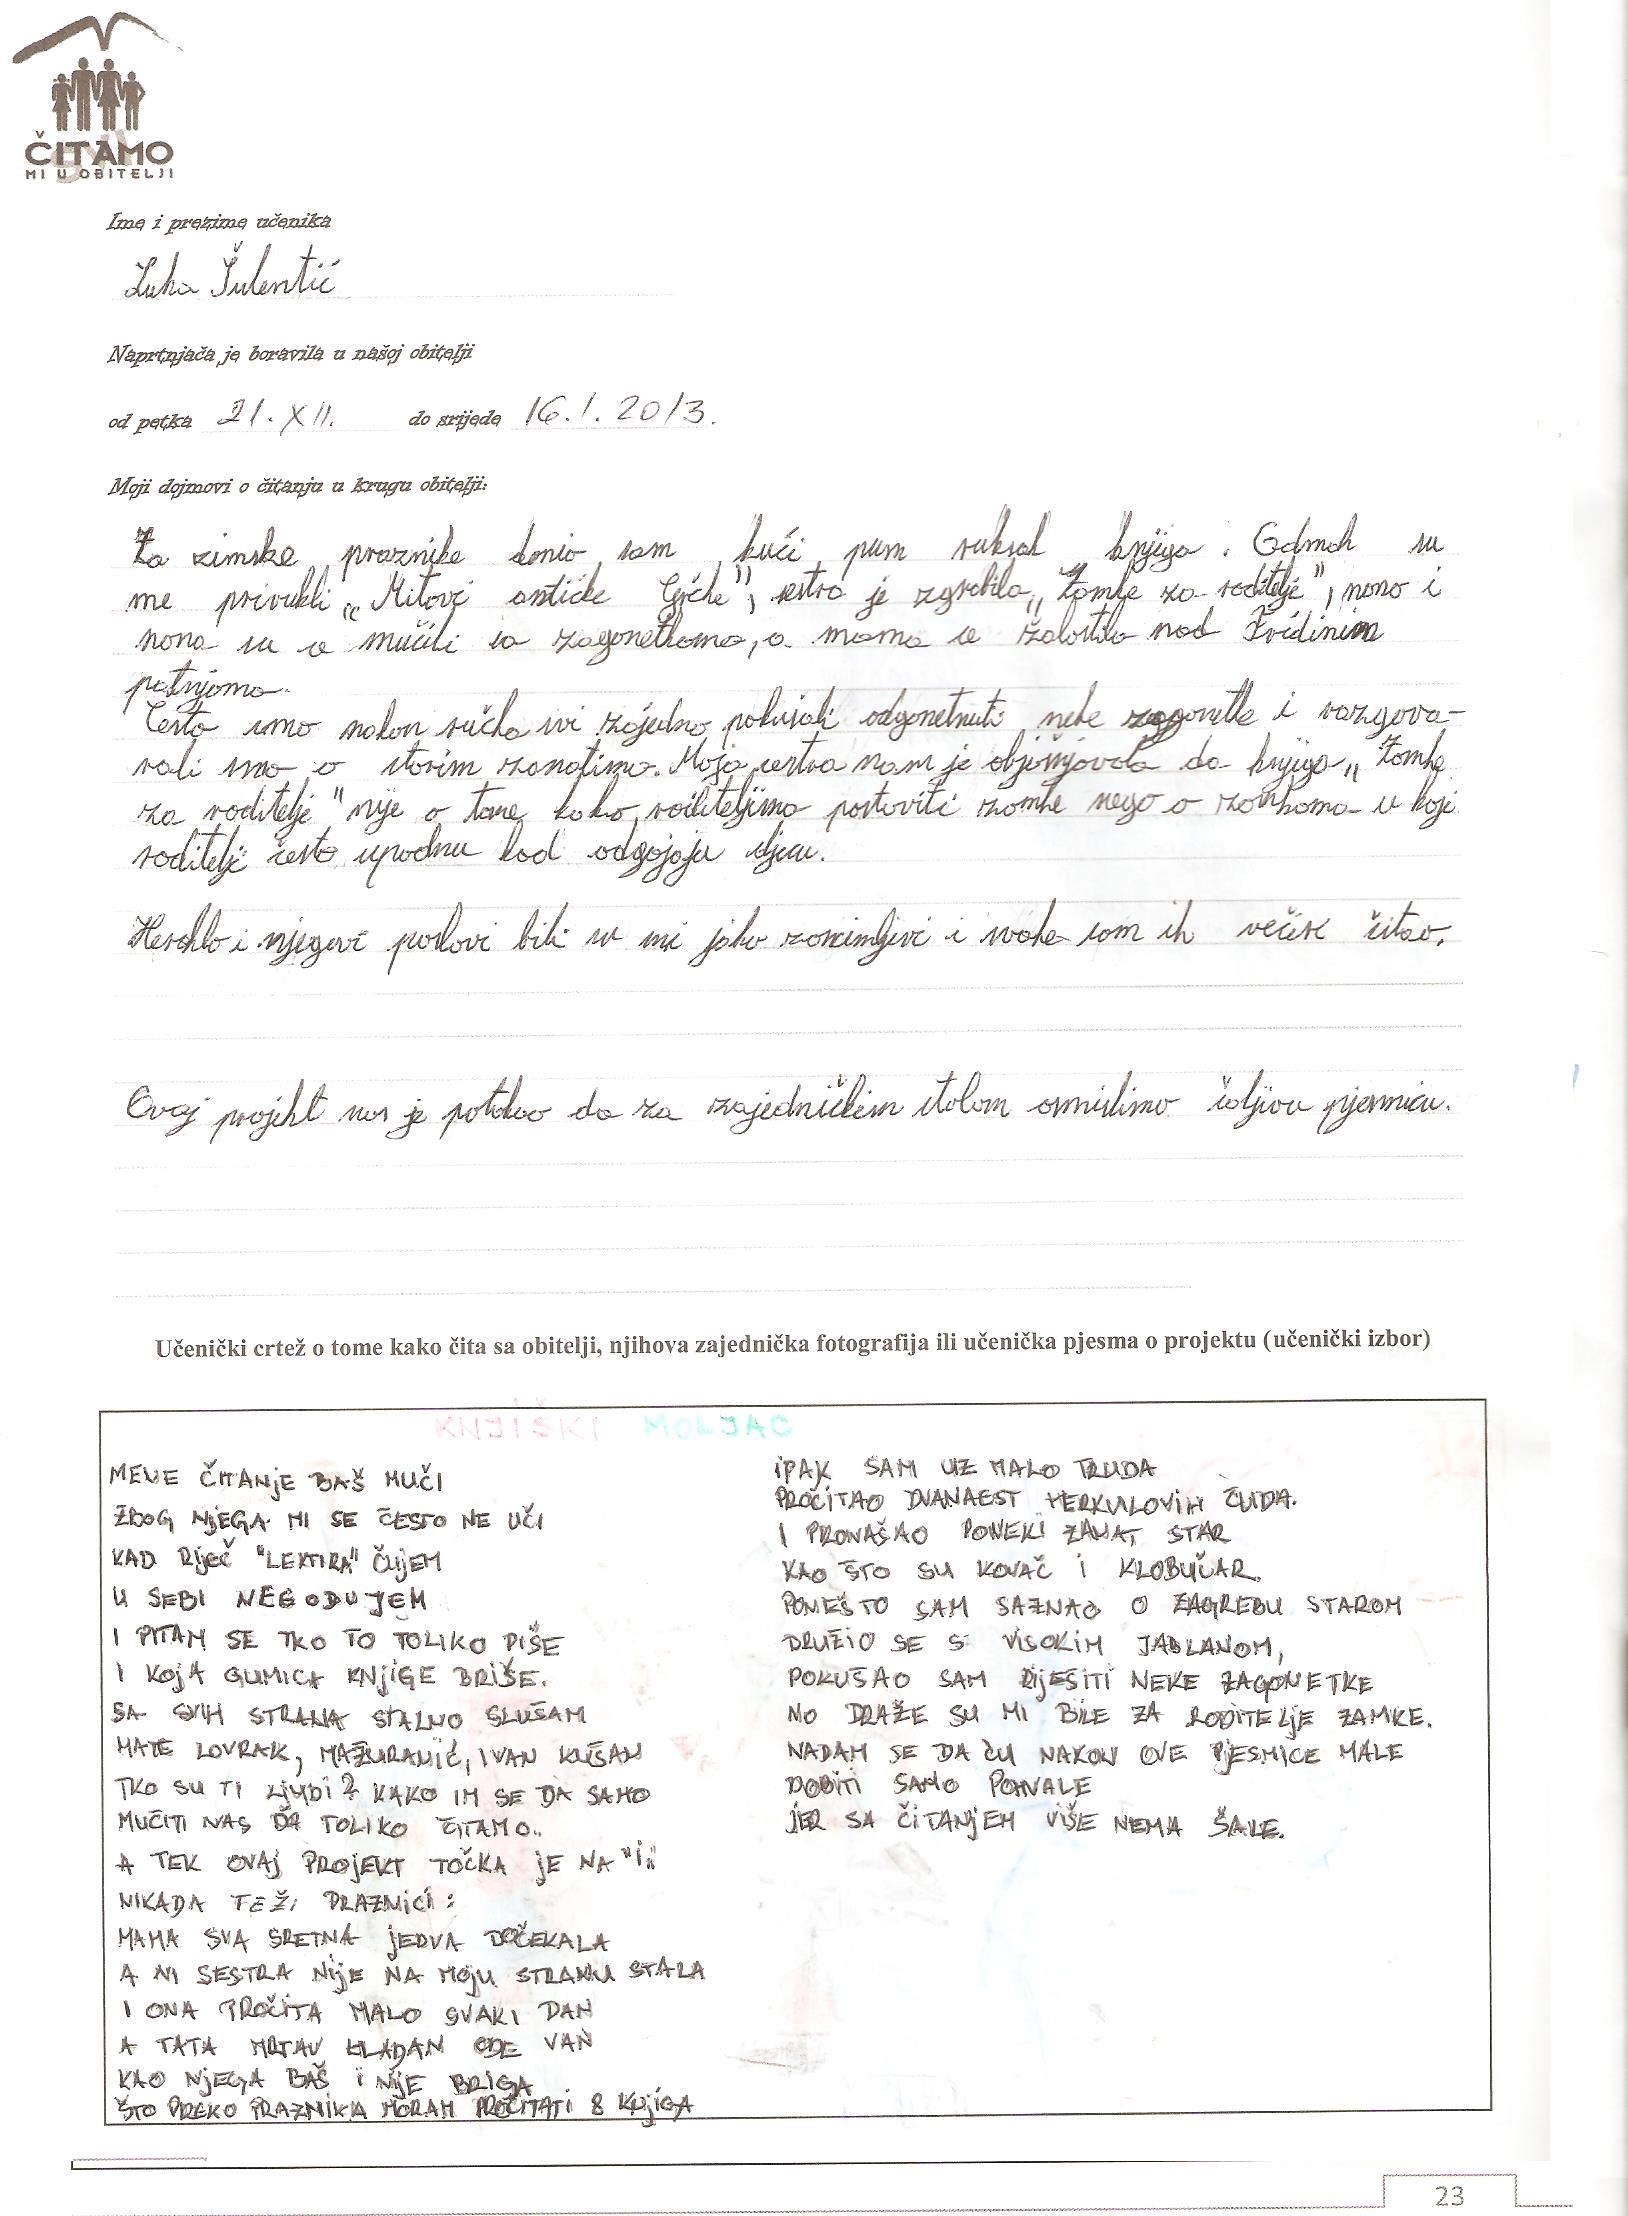 ČITAMO
MI U OBITELJI
Ime i prezime učenika
Luka Šulentić
Naprtnjača je boravila u našoj obitelji
od petka 21. XII. do srijede 16. I. 2013.
Moji dojmovi o čitanju u krugu obitelji:
Za zimske praznike donio sam kući pun ruksak knjiga. Odmah su
me privukli „Mitovi antičke Grčke", sestra je zgrabila „Zamke za roditelje", nono i
nona su se mučili sa zagonetkama, a mama se žalostila nad Fridinim
patnjama.
Često smo nakon ručka svi zajedno pokušali odgonetnuti neke zagonetke i razgova-
rali smo o starim zanatima. Moja sestra nam je objašnjavala da knjiga „Zamke
za roditelje" nije o tome kako roditeljima postaviti zamke nego o zamkama u koji
roditelji često upadnu kod odgajaju djecu.
Heraklo i njegovi poslovi bili su mi jako zanimljivi i svake sam ih večeri čitao.
Ovaj projekt nas je potakao da za zajedničkim stolom osmislimo šaljivu pjesmicu.
Učenički crtež o tome kako čita sa obitelji, njihova zajednička fotografija ili učenička pjesma o projektu (učenički izbor)
KNJIŠKI MOLJAC
MENE ČITANJE BAŠ MUČI
ZBOG NJEGA MI SE ČESTO NE UČI
KAD RIJEČ "LEKTIRA" ČUJEM
U SEBI NEGODUJEM
I PITAM SE TKO TO TOLIKO PIŠE
I KOJA GUMICA KNJIGE BRIŠE.
SA SVIH STRANA STALNO SLUŠAM
MATE LOVRAK, MAŽURANIĆ, IVAN KUŠAN
TKO SU TI LJUDI? KAKO IM SE DA SAMO
MUČITI NAS DA TOLIKO ČITAMO..
A TEK OVAJ PROJEKT TOČKA JE NA "I"
NIKADA TEŽI PRAZNICI:
MAMA SVA SRETNA JEDVA DOČEKALA
A NI SESTRA NIJE NA MOJU STRANU STALA
I ONA PROČITA MALO SVAKI DAN
A TATA MRTAV HLADAN ODE VAN
KAO NJEGA BAŠ I NIJE BRIGA
ŠTO PREKO PRAZNIKA MORAM PROČITATI 8 KNJIGA
IPAK SAM UZ MALO TRUDA
PROČITAO DVANAEST HERKULOVIH ČUDA.
I PRONAŠAO PONEKI ZANAT STAR
KAO ŠTO SU KOVAČ I KLOBUČAR.
PONEŠTO SAM SAZNAO O ZAGREBU STAROM
DRUŽIO SE S VISOKIM JABLANOM,
POKUŠAO SAM RIJEŠITI NEKE ZAGONETKE
NO DRAŽE SU MI BILE ZA RODITELJE ZAMKE.
NADAM SE DA ĆU NAKON OVE PJESMICE MALE
DOBITI SAMO POHVALE
JER SA ČITANJEM VIŠE NEMA ŠALE.
23